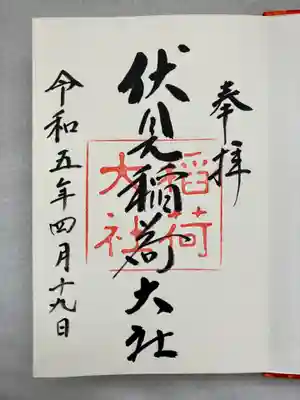 奉拝
伏見稲荷大社
稲荷
大社
令和五年四月十九日